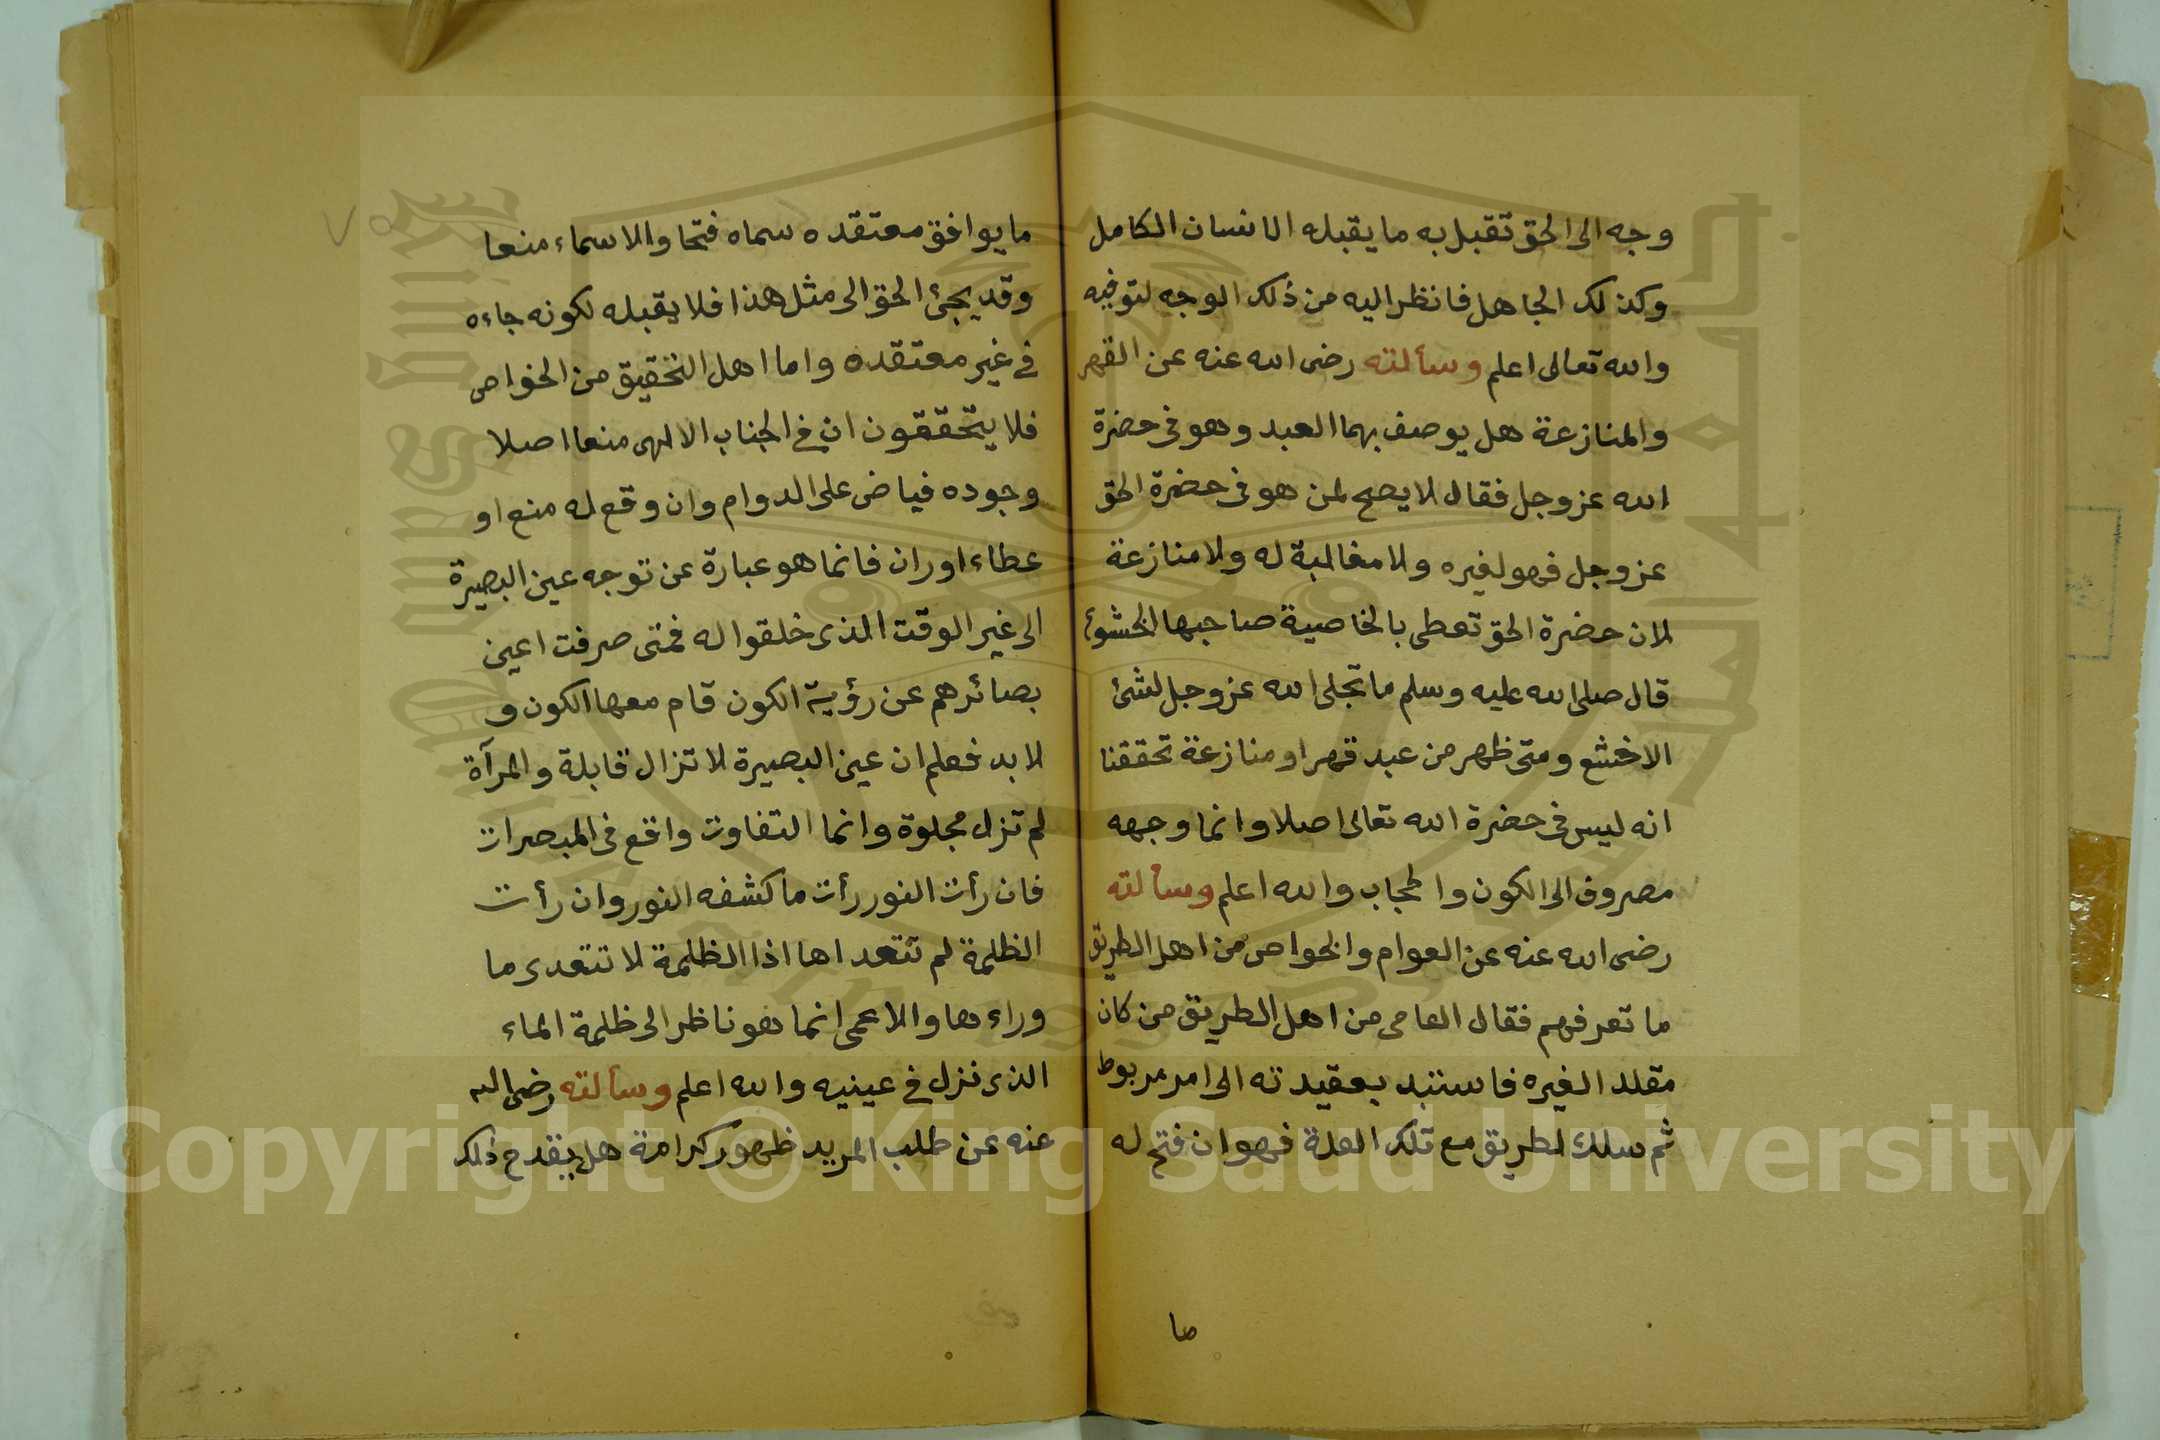 وجه الى الحق تقبل به ما يقبله الانسان الكامل
وكذلك الجاهل فانظر اليه من ذلك الوجه لتوفيه
والله تعالى اعلم وسألته رضى الله عنه عن القهر
والمنازعة هل يوصف بهما العبد وهو فى حضرة
الله عز وجل فقال لا يصح لمن هو فى حضرة الحق
عز وجل قهر لغيره ولا مغالبة له ولا منازعة
لان حضرة الحق تعطى بالخاصية صاحبها الخشوع
قال صلى الله عليه وسلم ما تجلى الله عز وجل لشئ
الا خشع ومتى ظهر من عبد قهر او منازعة تحققنا
انه ليس فى حضرة الله تعالى اصلا وانما وجهه
مصروف الى الكون والحجاب والله اعلم وسألته
رضى الله عنه عن العوام والخواص من اهل الطريق
ما تعرفهم فقال العامى من اهل الطريق من كان
مقلد الغيره فاستند بعقيدته الى امر مربوط
ثم سلك لطريق مع تلك العلة فهو ان فتح له
ما
ما يوافق معتقده سماه فتحا والا سماء منعا
وقد يجئ الحق الى مثل هذا فلا يقبله لكونه جاءه
فى غير معتقده واما اهل التحقيق من الخواص
فلا يتحققون ان فى الجناب الالهى منعا اصلا
وجوده فياض على الدوام وان وقع له منع او
عطاء اوران فانما هو عبارة عن توجه عين البصيرة
الى غير الوقت الذى خلقوا له فمتى صرفت اعين
بصائرهم عن رؤية الكون قام معها الكون و
لا بد فعلم ان عين البصيرة لا تزال قابلة والمرآة
لم تزل مجلوة وانما التفاوت واقع فى المبصرات
فان رأت النور رأت ما كشفه النور وان رأت
الظلمة لم تتعداها اذا الظلمة لا تتعدى ما
وراءها والاعمى انما هو ناظر الى ظلمة الماء
الذى نزل فى عينيه والله اعلم وسألته رضى الله
عنه عن طلب المريد ظهور كرامة هل يقدح ذلك
Copyright © King Saud University